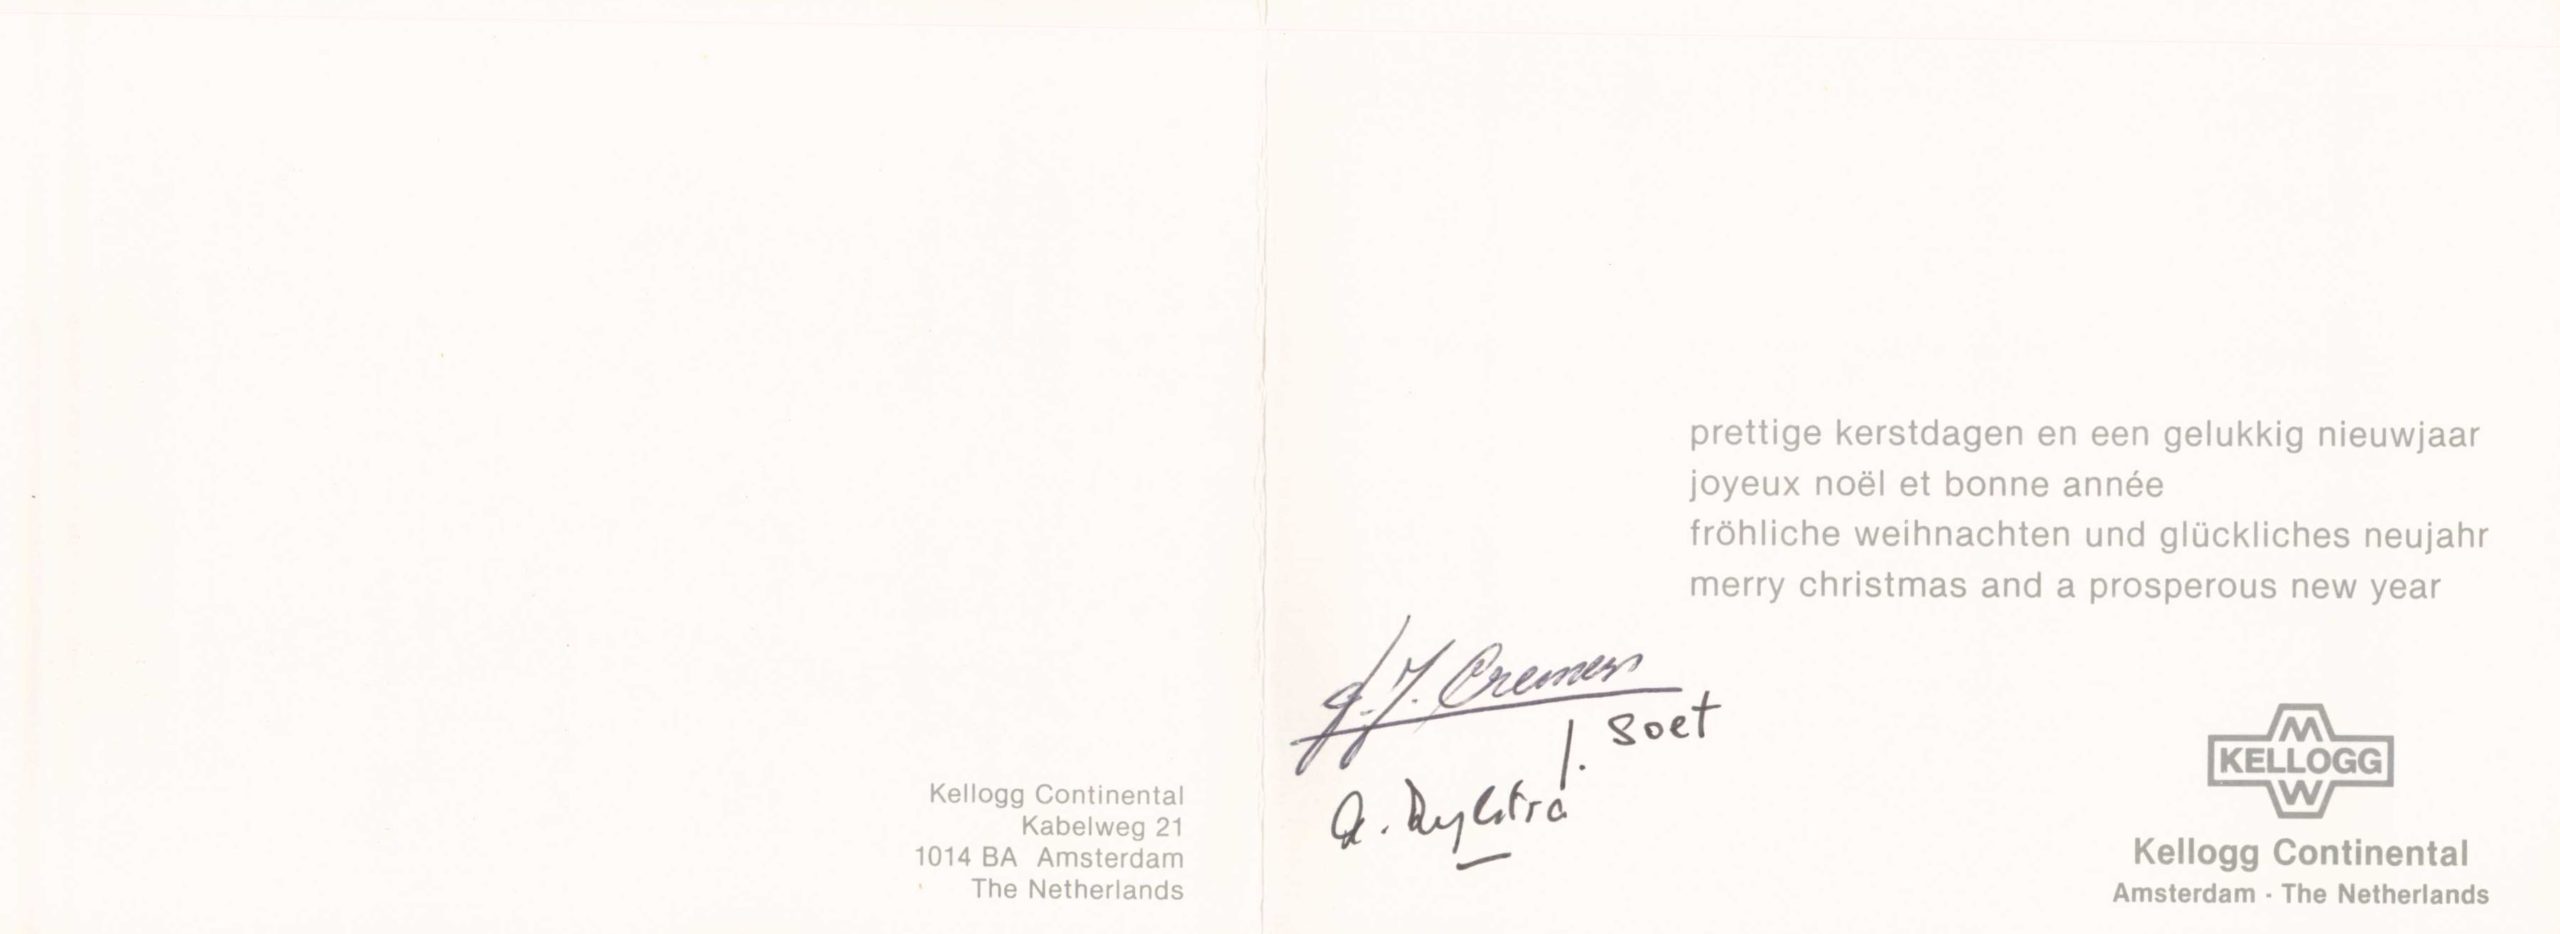 Kellogg Continental
Kabelweg 21
1014 BA Amsterdam
The Netherlands
prettige kerstdagen en een gelukkig nieuwjaar
joyeux noël et bonne année
fröhliche weihnachten und glückliches neujahr
merry christmas and a prosperous new year
J. Soet
M
KELLOGG
W
Kellogg Continental
Amsterdam - The Netherlands